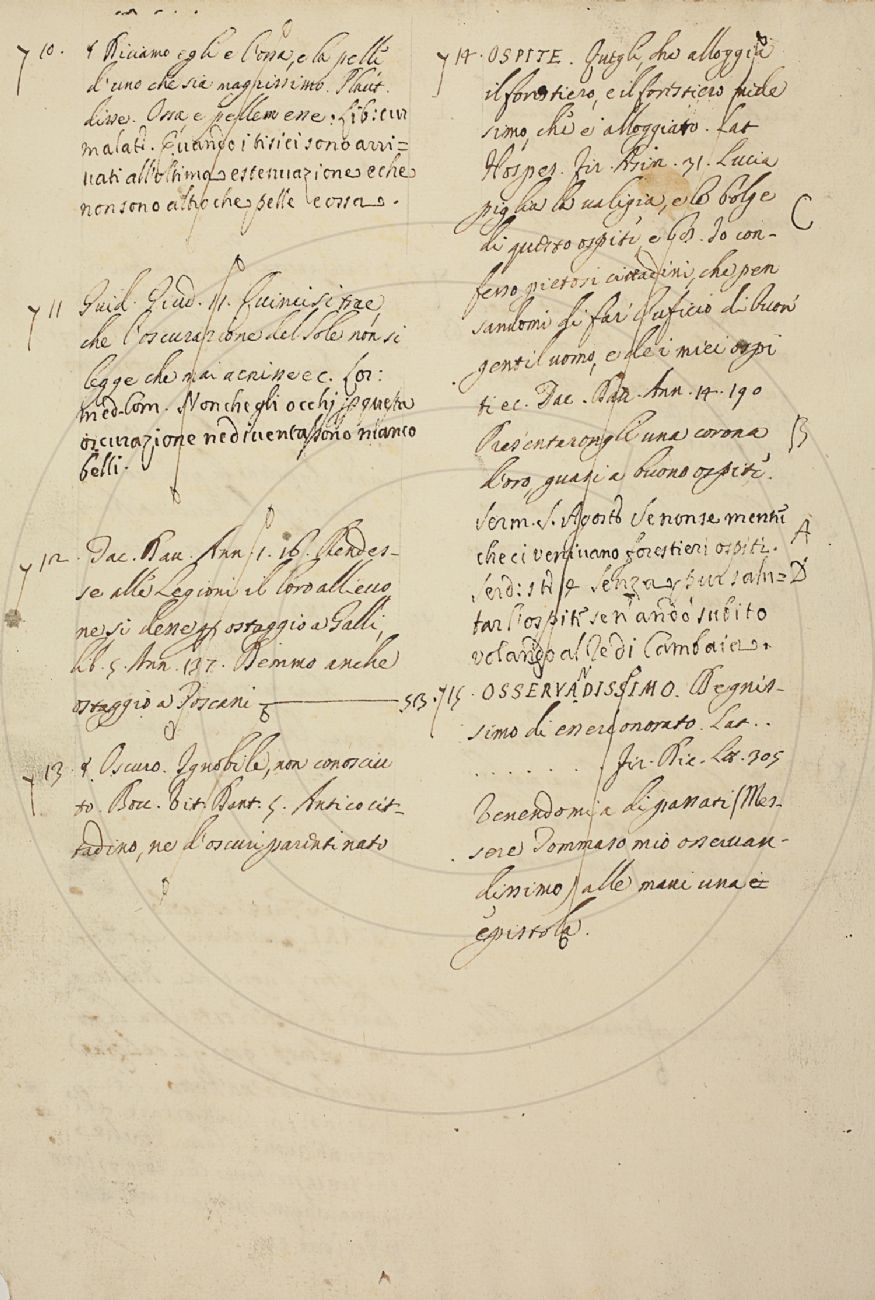 10. § Diciamo egli è l'ossa, e la pelle
d'uno che sia magrissimo. Plaut.
disse. Ossa, e pellem esse. Lib: cur
malatt. Quando i tisici sono arri=
uati all'ultima estenuazione e che
non sono altro che pelle e ossa.
11 Guid. Giud. 11. Quinci si trae,
che l'oscurazione del sole non si
legge che mai avenisse ec. Lor:
med. Com. Non che gli occhi p questa
oscurazione ne diventassono manco
belli.
12. Dav. Ann. 1. 16. Rendes-
se alle Legioni il loro allievo,
ne si desse p ostaggio a Galli,
lib. 5. Ann. 137. Demmo anche
ostaggio a Toscani 513.
13. § Oscuro. Ignobile, non conosciu
to. Bocc. Vit. Dant. 5. Antico cit-
tadino, ne d'oscuri parenti nato
14. OSPITE. Quegli, che alloggia
il forestiero, e il forestiero mede
simo, che è alloggiato. Lat
Hospes. Fir. Asin. 31. Lucia
piglia la valigia, e le bolge
di questo ospite, e 68. Io con- C
fesso pietosi cittadini, che pen
sandomi di far l'uficio di buon
gentil uomo, e de i miei ospi
ti ec. Dav. Ann. 14. 190
Presentarongli una corona B
d'oro, quasi a buono ospite.
Serm. S. Agost. Se non se mentre A
che ci venivano forestieri ospiti.
Serd: st: Senza pur salu= D
tar l'ospite sen'andò subito
volando al Re di Cambaia.
15. OSSERVANDISSIMO. Degnis-
simo di essere onorato. Lat. . .
. . . . . . Fir. Lett. 305
Venendomi a di passati (Mes-
sere Tommaso mio osservan-
dissimo) alle mani una e=
epistola.